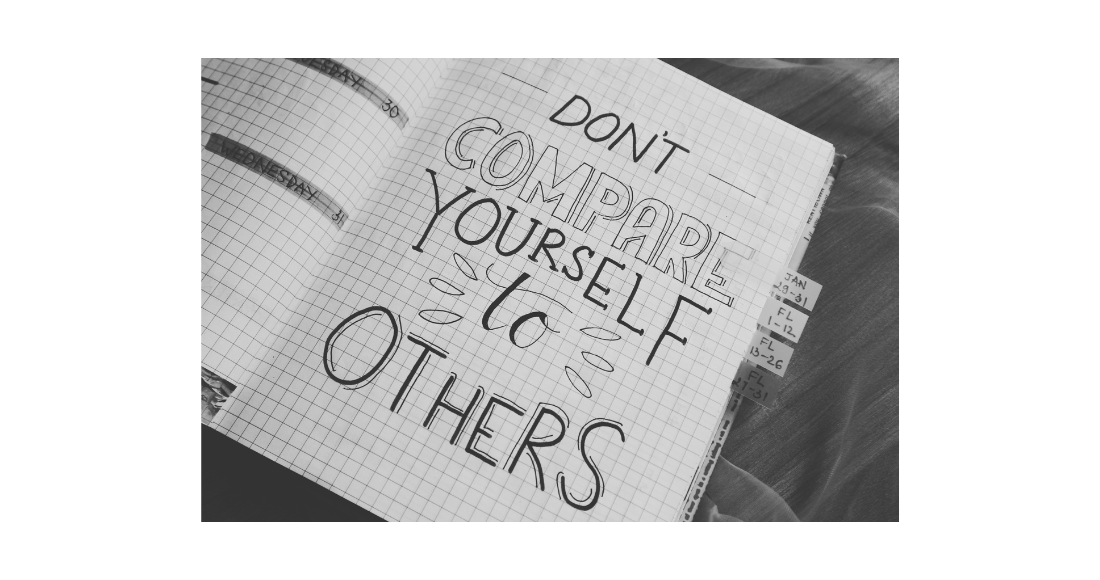 30
WEDNESDAY 31
DON'T
COMPARE
YOURSELF
to
OTHERS
JAN
28-31
FL
1-12
FL
13-26
FL